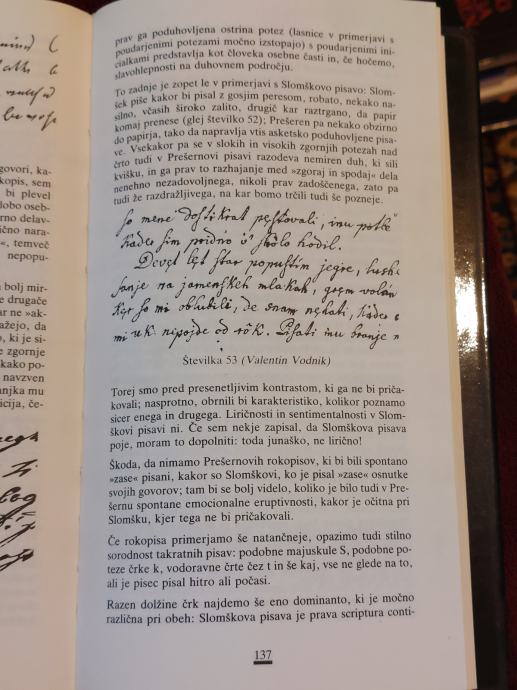 govori, ka-
kopis, sem
bi plevel
dobo oseb-
rno delav-
ično nara-
«, temveč
nepopu-
bolj mir-
e drugače
ar ne »ak-
ažejo, da
, ki je si-
e zgornje
kako po-
navzven
anjku mu
icija, če-
prav ga poduhovljena ostrina potez (lasnice v primerjavi s
poudarjenimi potezami močno izstopajo) s poudarjenimi ini-
cialkami predstavlja kot človeka osebne časti in, če hočemo,
slavohlepnosti na duhovnem področju.
To zadnje je zopet le v primerjavi s Slomškovo pisavo: Slom-
šek piše kakor bi pisal z gosjim peresom, robato, nekako na-
silno, včasih široko zalito, drugič kar raztrgano, da papir
komaj prenese (glej številko 52); Prešeren pa nekako obzirno
do papirja, tako da napravlja vtis asketsko poduhovljene pisa-
ve. Vsekakor pa se v slokih in visokih zgornjih potezah nad
črto tudi v Prešernovi pisavi razodeva nemiren duh, ki sili
kvišku, in ga prav to razhajanje med »zgoraj in spodaj« dela
nenehno nezadovoljnega, nikoli prav zadoščenega, zato pa
tudi že razdražljivega, na kar bomo trčili tudi še pozneje.
so mene dostikrat pestovali, inu potle
kader sim pridno v' sholo hodil.
Devet let star popustim jegre, lushi-
sanje na jamenskih mlakah, grem volan
ker so mi oblubili, de snam nehati, kader
mi uk nipojde od rôk. Pisati inu branje
Številka 53 (Valentin Vodnik)
Torej smo pred presenetljivim kontrastom, ki ga ne bi priča-
kovali; nasprotno, obrnili bi karakteristiko, kolikor poznamo
sicer enega in drugega. Liričnosti in sentimentalnosti v Slom-
škovi pisavi ni. Če sem nekje zapisal, da Slomškova pisava
poje, moram to dopolniti: toda junaško, ne lirično!
Škoda, da nimamo Prešernovih rokopisov, ki bi bili spontano
»zase« pisani, kakor so Slomškovi, ko je pisal »zase« osnutke
svojih govorov; tam bi se bolj videlo, koliko je bilo tudi v Pre-
šernu spontane emocionalne eruptivnosti, kakor je očitna pri
Slomšku, kjer tega ne bi pričakovali.
Če rokopisa primerjamo še natančneje, opazimo tudi stilno
sorodnost takratnih pisav: podobne majuskule S, podobne po-
teze črke k, vodoravne črte čez t in še kaj, vse ne glede na to,
ali je pisec pisal hitro ali počasi.
Razen dolžine črk najdemo še eno dominanto, ki je močno
različna pri obeh: Slomškova pisava je prava scriptura conti-
137